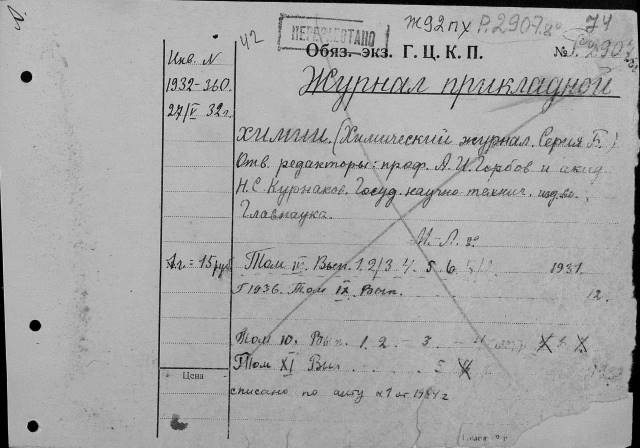 Ж92пх Р.2907.8° 74
42
ПЕРЕУЧТЕНО
Обяз. экз. Г. Ц. К. П. №
Инв. N
1932-360.
27/V 32 г.
Журнал прикладной
химии. (Химический журнал. Серия Б.)
Отв. редакторы: проф. А.И. Горбов и акад.
Н.С. Курнаков. Госуд. научно технич. изд-во.
Главнаука.
М.-Л. 8°
1 г. = 15 руб.
Том IV. Вып. 1. 2/3 4. 5. 6. 1931.
Г1936. Том IX. Вып. 12.
Том 10. Вып. 1. 2. - 3. - 4
Том XI Вып. 5
Цена
списано по акту №1 от 1984 г